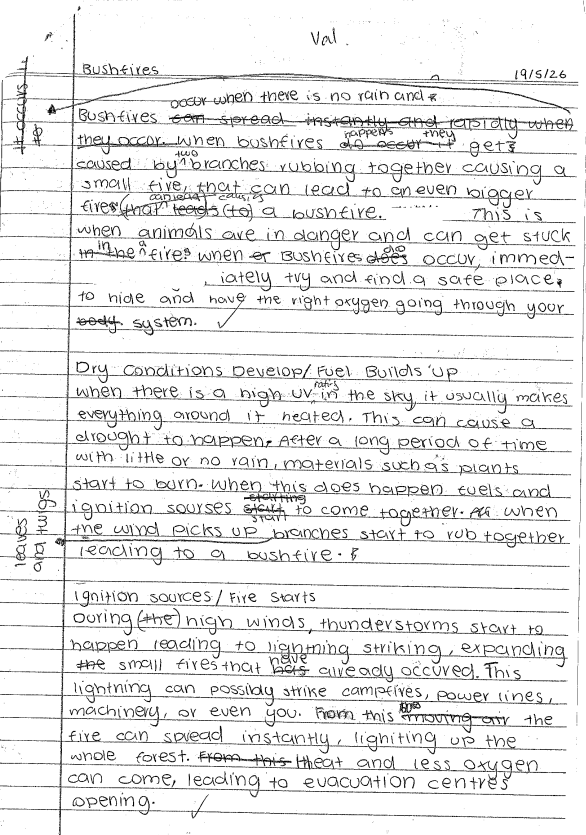 Val
Bushfires 19/5/26
It occurs
to
occur when there is no rain and
Bushfires can spread instantly and rapidly when
they occur. When bushfires do occur it happens they gets
caused by two branches rubbing together causing a
small fire, that can lead to an even bigger
fires (that leads (to) can lead causes a bushfire. This is
when animals are in danger and can get stuck
in the in a fires when or Bushfires does do occur, immed-
iately try and find a safe place,
to hide and have the right oxygen going through your
body. system.
Dry Conditions Develop/Fuel Builds Up
when there is a high UV rating in the sky, it usually makes
everything around it heated. This can cause a
drought to happen. After a long period of time
with little or no rain, materials such as plants
start to burn. When this does happen fuels and
ignition sourses start starting start to come together. when
the wind picks up branches start to rub together
leaves
and twigs
leading to a bushfire.
Ignition sources/Fire Starts
During (the) high winds, thunderstorms start to
happen leading to lightning striking, expanding
the small fires that has have already occured. This
lightning can possibly strike campfires, power lines,
machinery, or even you. From this moving air the
fire can spread instantly, ligniting up the
whole forest. From this heat and less oxygen
can come, leading to evacuation centres
opening.